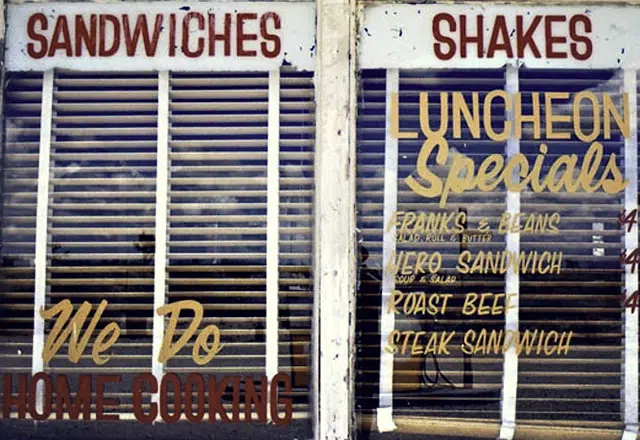 SANDWICHES
We Do
HOME COOKING
SHAKES
LUNCHEON
Specials
FRANKS & BEANS $4
SALAD, ROLL & BUTTER
NERO SANDWICH $4
SOUP & SALAD
ROAST BEEF $4
STEAK SANDWICH